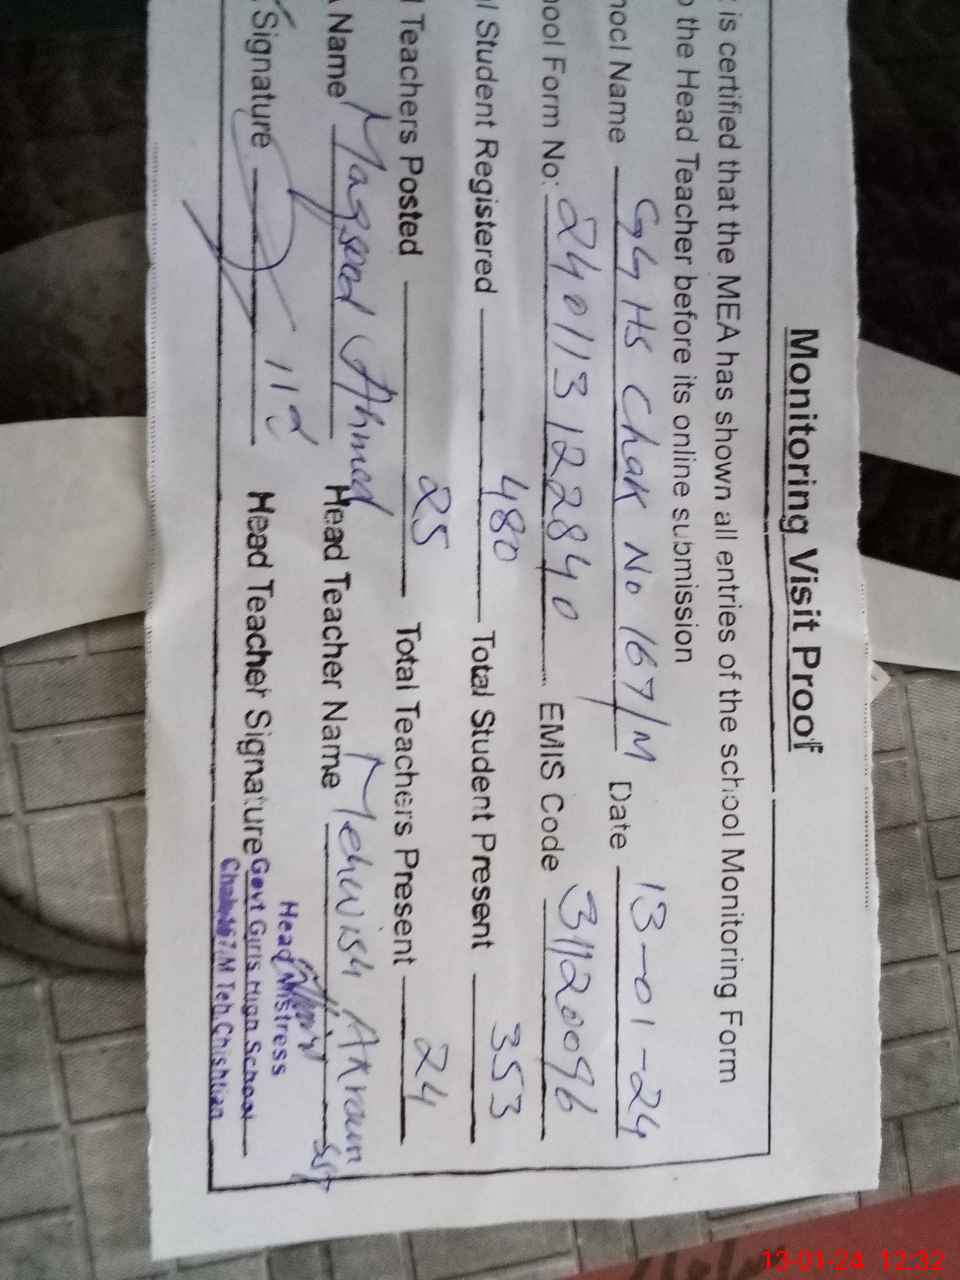 Monitoring Visit Proof
is certified that the MEA has shown all entries of the school Monitoring Form
the Head Teacher before its online submission
hool Name GGHS Chak No 167/M Date 13-01-24
hool Form No: 240113122840 EMIS Code 31120096
l Student Registered 480 Total Student Present 353
l Teachers Posted 25 Total Teachers Present 24
A Name Maqsood Ahmed Head Teacher Name Mehwish Akram SST
Signature Head Teacher Signature
Head Mistress
Govt Girls High School
Chak 167/M Teh. Chishtian
13-01-24 12:32